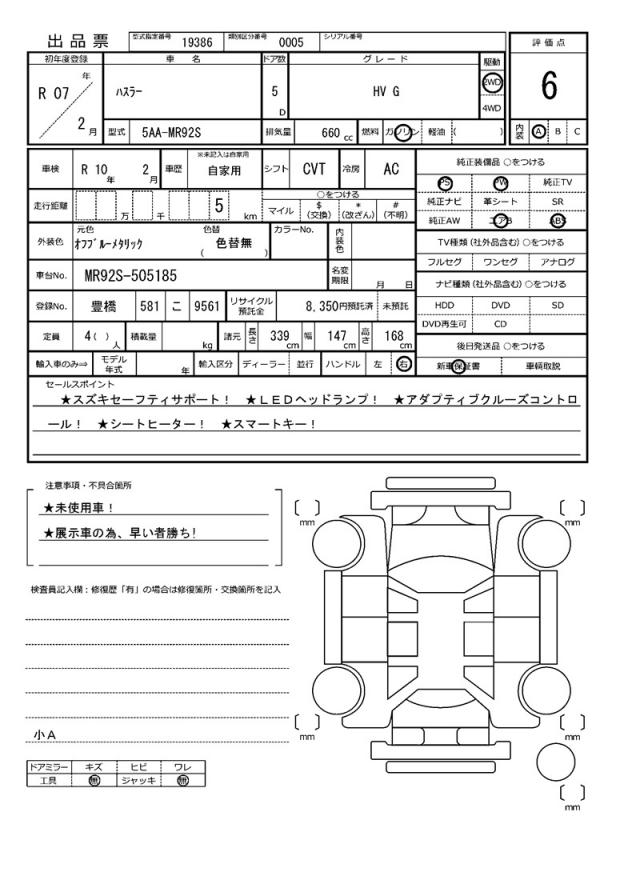 出品票 型式指定番号 19386 類別区分番号 0005 シリアル番号
評価点
初年度登録 車名 ドア数 グレード 駆動
R 07 年 2 月 ハスラー 5 D HV G 2WD 4WD 6
型式 5AA-MR92S 排気量 660 cc 燃料 ガソリン 軽油 ( ) 内装 A B C
車検 R 10 年 2 月 車歴 ※未記入は自家用 自家用 シフト CVT 冷房 AC
純正装備品 ○をつける
PS PW 純正TV
走行距離 万 千 5 km ○をつける
マイル $ (交換) * (改ざん) # (不明)
純正ナビ 革シート SR
純正AW エアB ABS
外装色 元色 オフブルーメタリック 色替 色替無 ( ) カラーNo. 内装色
TV種類 (社外品含む) ○をつける
フルセグ ワンセグ アナログ
車台No. MR92S-505185 名変期限 月 日
ナビ種類 (社外品含む) ○をつける
登録No. 豊橋 581 こ 9561 リサイクル預託金 8,350円預託済 未預託
HDD DVD SD
DVD再生可 CD
定員 4 ( ) 人 積載量 kg 諸元 長さ 339 cm 幅 147 cm 高さ 168 cm
後日発送品 ○をつける
輸入車のみ⇒ モデル年式 年 輸入区分 ディーラー 並行 ハンドル 左 右
新車保証書 車輌取説
セールスポイント
★スズキセーフティサポート！ ★ＬＥＤヘッドランプ！ ★アダプティブクルーズコントロ
ール！ ★シートヒーター！ ★スマートキー！
注意事項・不具合箇所
★未使用車！
★展示車の為、早い者勝ち!
検査員記入欄：修復歴「有」の場合は修復箇所・交換箇所を記入
小Ａ
ドアミラー キズ ヒビ ワレ
工具 無 ジャッキ 無
mm
mm
mm
mm
mm